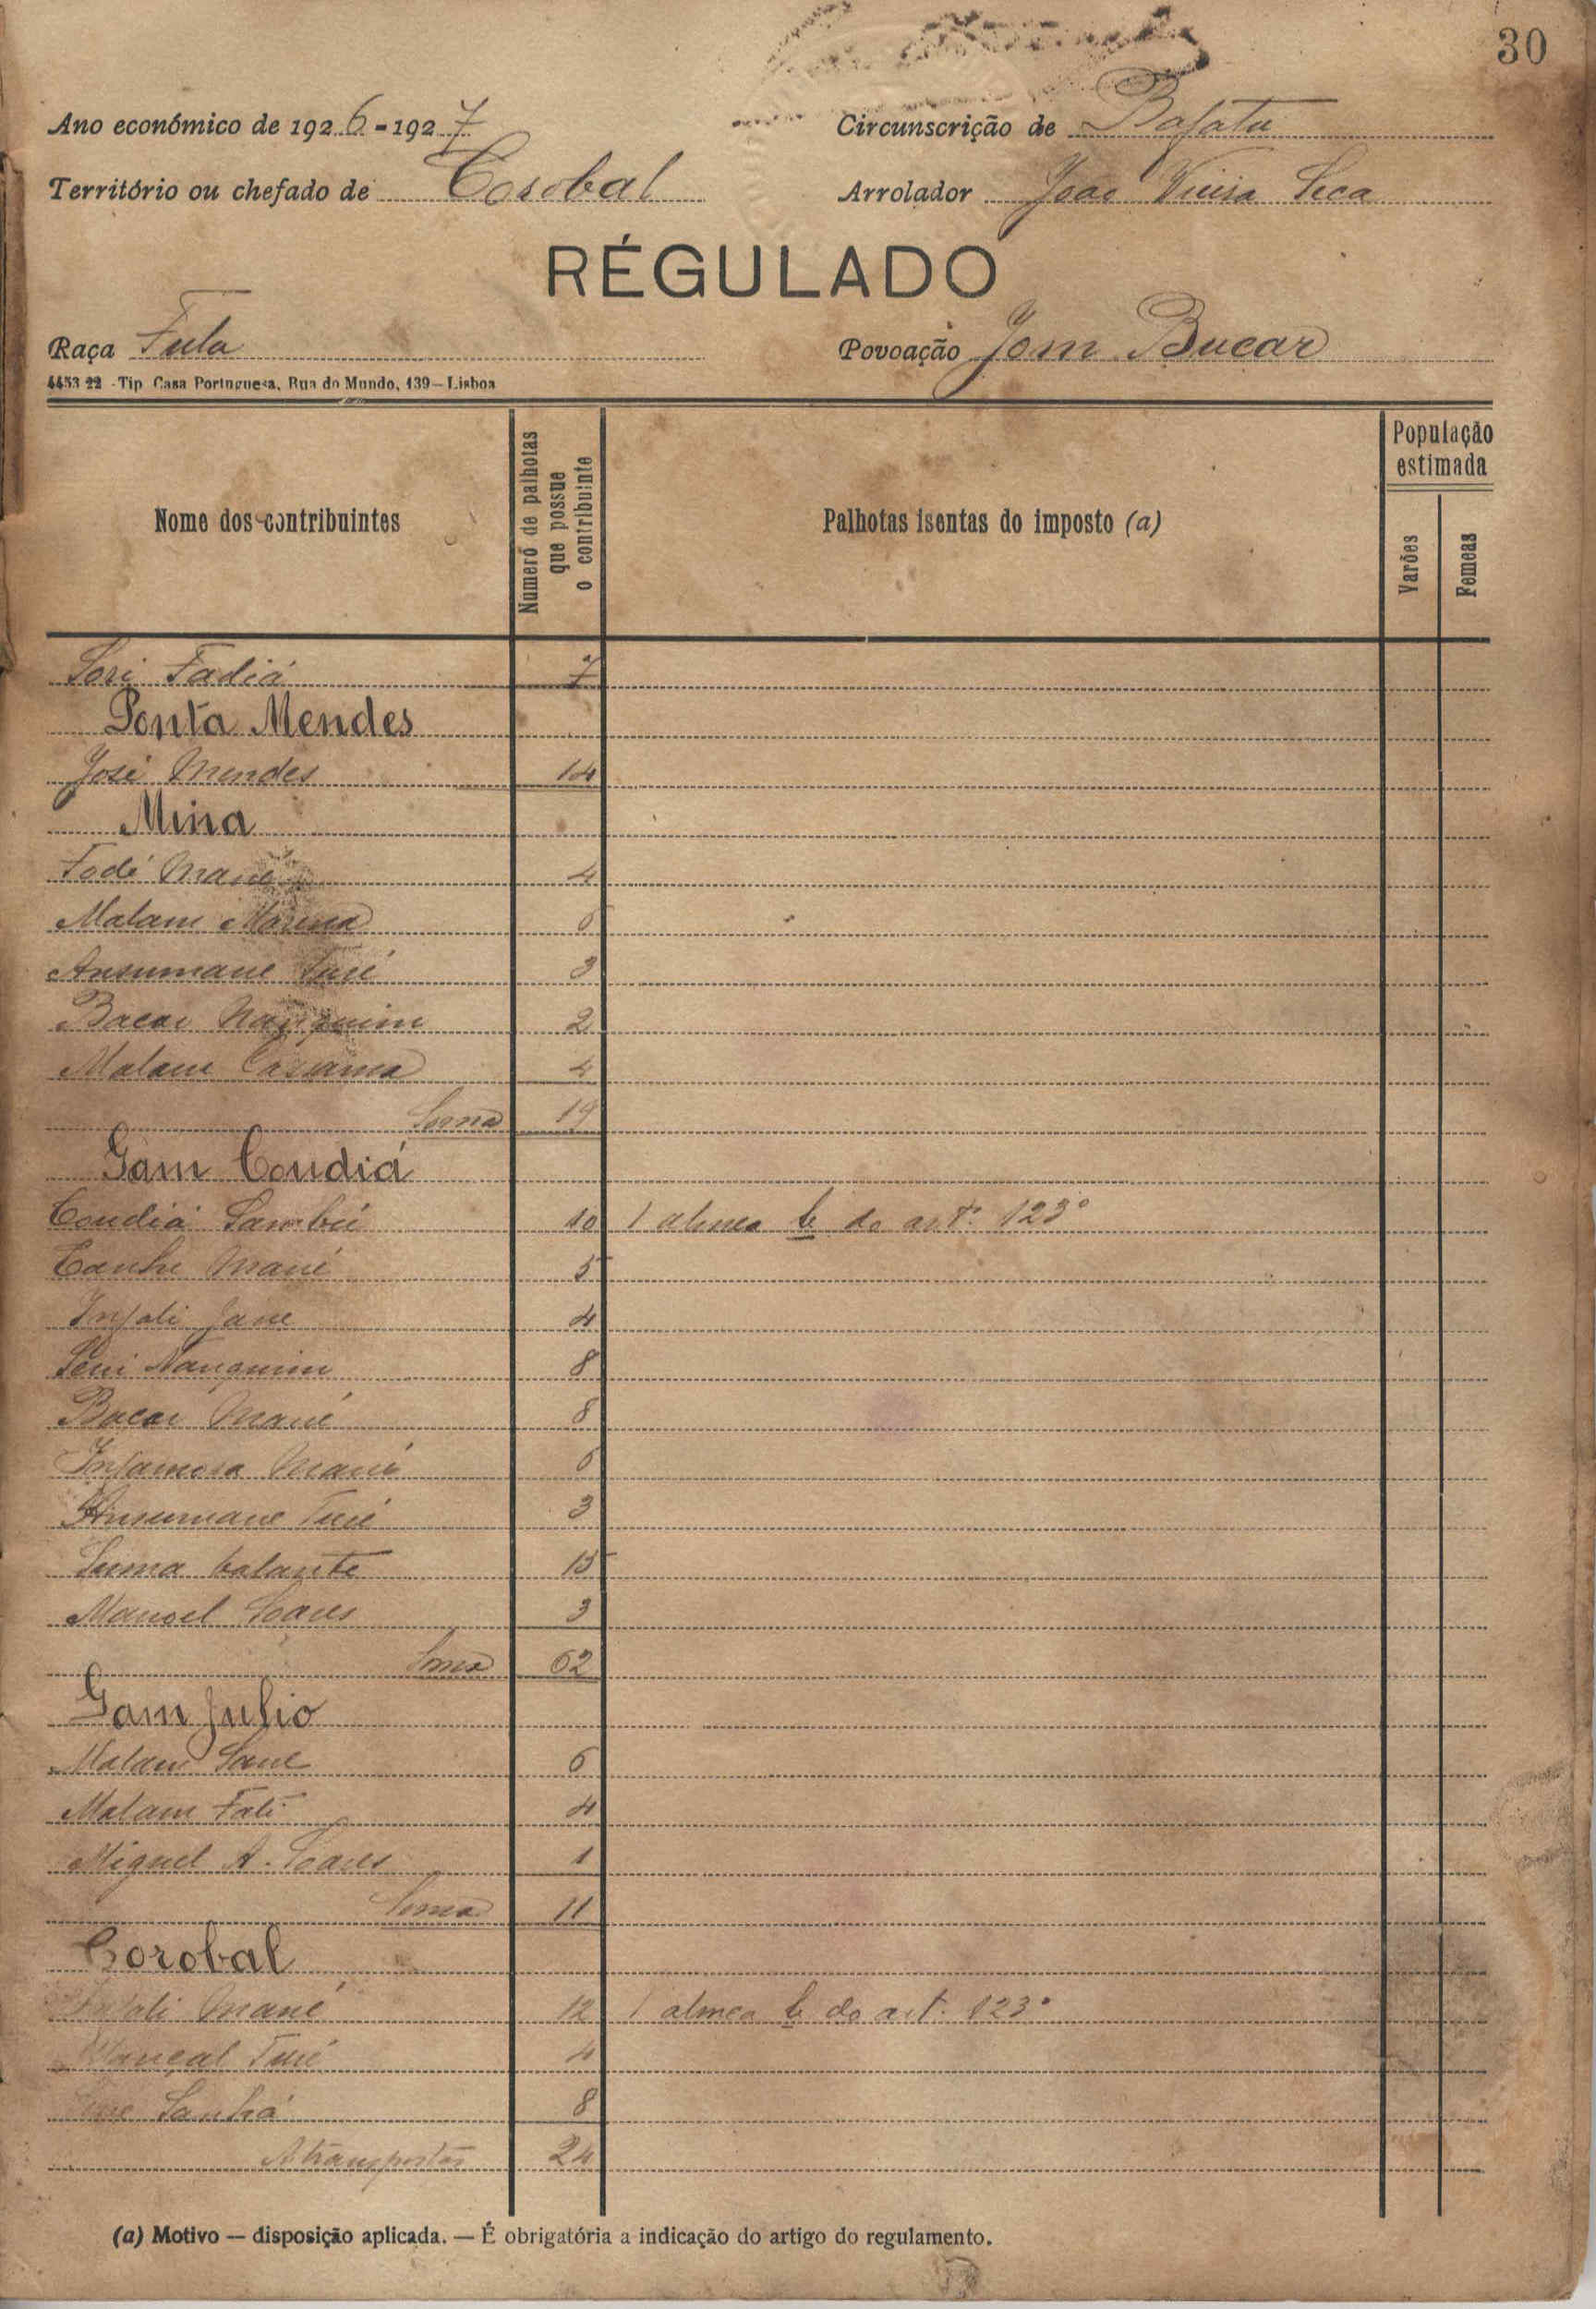 30
Ano económico de 1926-1927
Circunscrição de Bafata
Território ou chefado de Corobal
Arrolador João Vieira Seca
RÉGULADO
Raça Fula
Povoação Jom Bucar
4453 22 - Tip Casa Portuguesa, Rua do Mundo, 139—Lisboa
Nome dos contribuintes
Numero de palhotas que possue o contribuinte
Palhotas isentas do imposto (a)
População estimada
Varões
Femeas
Sori Fadiá 7
Ponta Mendes
José Mendes 14
Mina
Fodé Mané 4
Malam 6
Ansumane Turé 3
Bacar Nanquim 2
Malam Cassama 4
Soma 19
Gam Condiá
Condiá Sambú 10 1 alinea b do art.º 123º
Mané 5
Infali Jane 4
Seni Nanquim 8
Bacar Mané 8
Infamora Mané 6
Ansumane Turé 3
Suma balante 15
Manoel Soares 3
Soma 62
Gam Julio
Malam Sane 6
Malam Fati 4
Miguel A. Soares 1
Soma 11
Corobal
Infali Mané 12 1 alinea b do art. 123º
Turé 4
Sanhá 8
A transportar 24
(a) Motivo — disposição aplicada. — É obrigatória a indicação do artigo do regulamento.